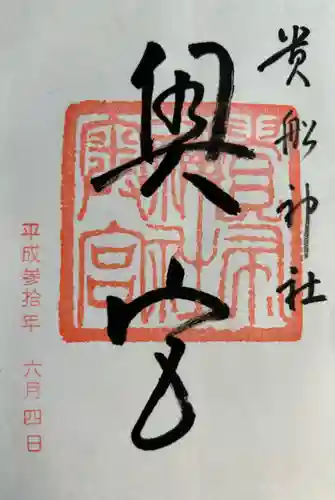 貴船神社
奥宮
貴布禰神社奥宮
平成参拾年 六月四日